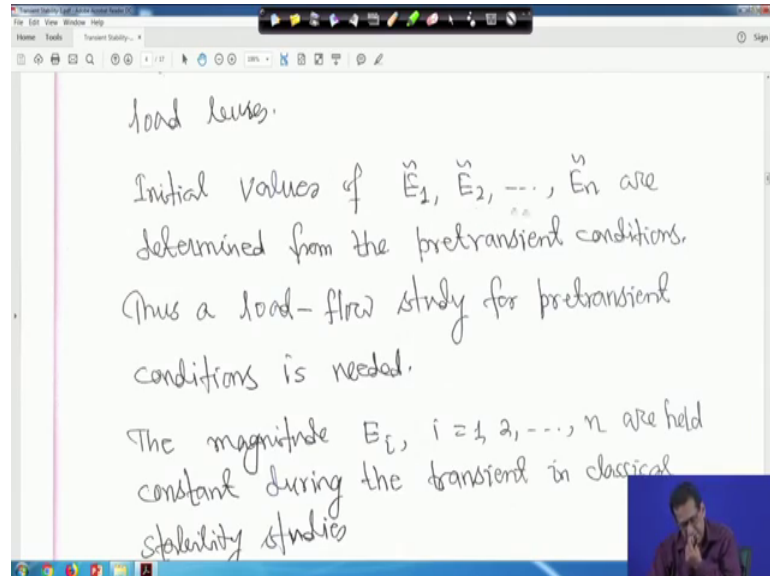 Transient Stability-1.pdf - Adobe Acrobat Reader DC
File Edit View Window Help
Home Tools Transient Stability-... ×
Sign
load buses.
Initial values of Ẽ1, Ẽ2, ---., Ẽn are
determined from the pretransient conditions.
Thus a load-flow study for pretransient
conditions is needed.
The magnitude Ei, i = 1, 2, ---., n are held
constant during the transient in classical
stability studies